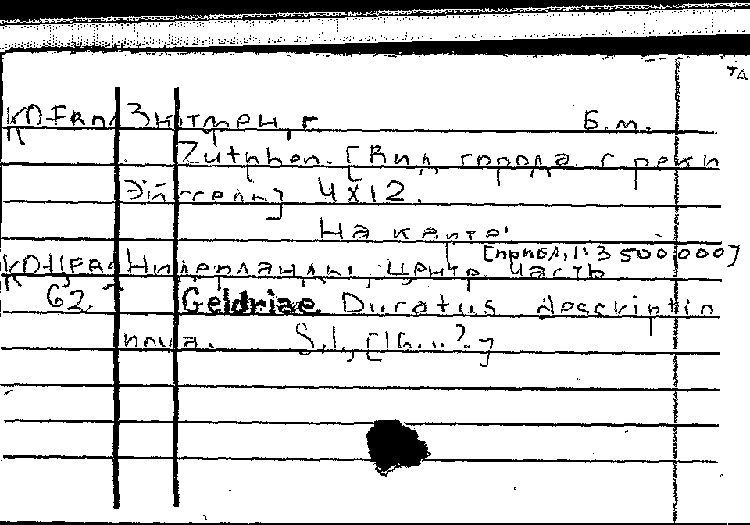 Зютфен, г. Б.м.
Zutphen. [Вид города с реки
Эйссель] 4x12.
На карте:
[прибл. 1:3 500 000]
Нидерланды, центр. часть
62. Geldriae Ducatus descriptio
nova. S.l., [16..?]